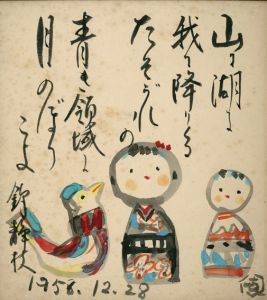 山に湖に
我に降りくる
たそがれの
青き領域に
月のぼりこよ
鈴木静枝
1958.12.28